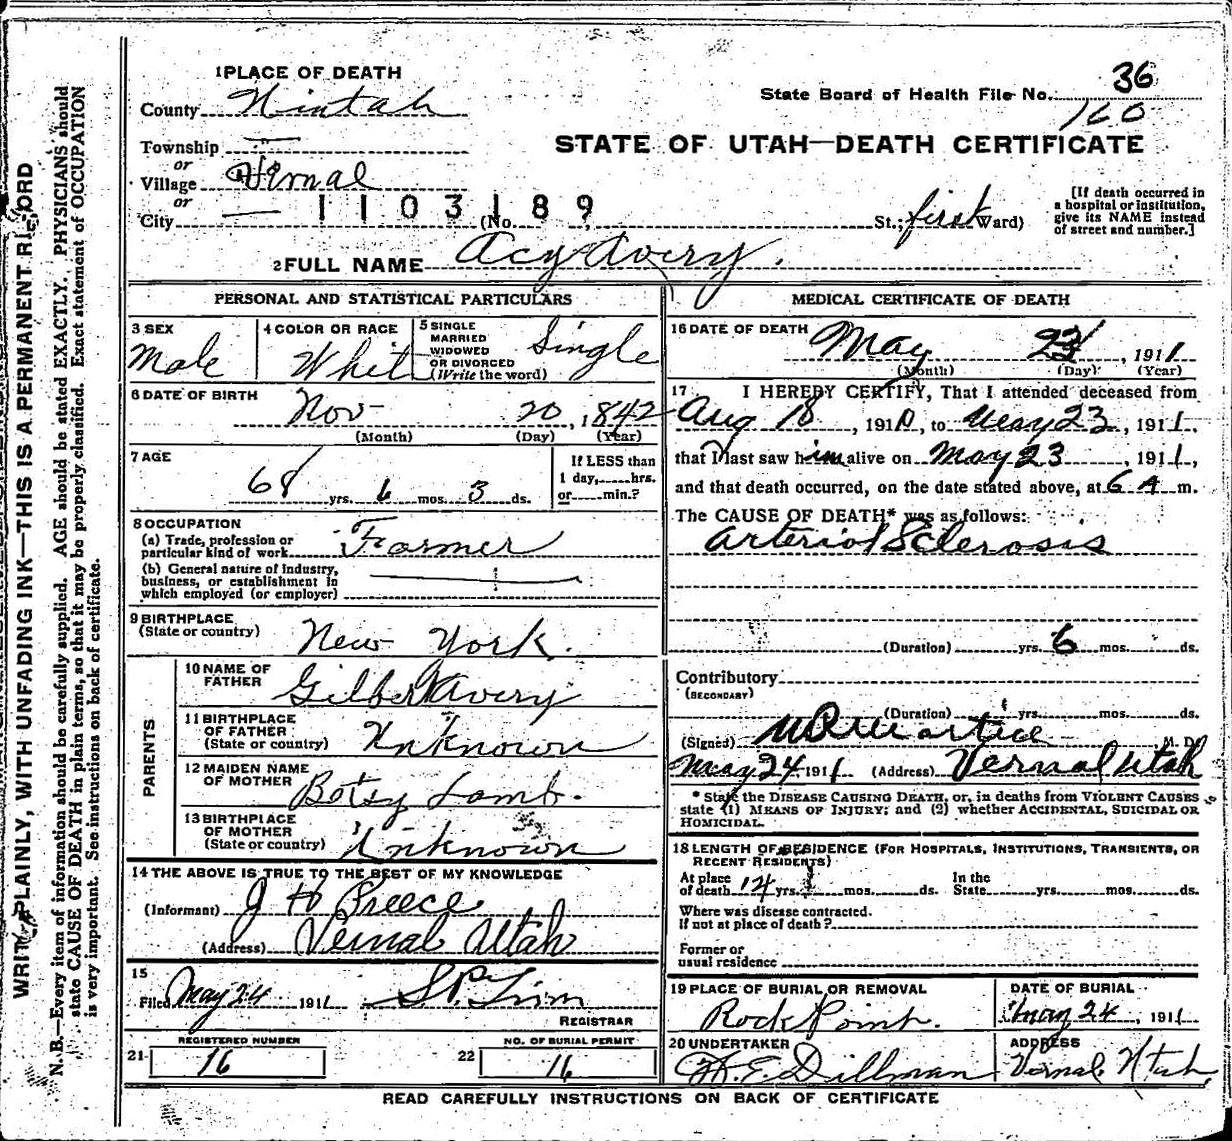 WRITE PLAINLY, WITH UNFADING INK—THIS IS A PERMANENT RECORD
N. B.—Every item of information should be carefully supplied. AGE should be stated EXACTLY. PHYSICIANS should
state CAUSE OF DEATH in plain terms, so that it may be properly classified. Exact statement of OCCUPATION
is very important. See instructions on back of certificate.
1 PLACE OF DEATH
County Uintah
Township —
or
Village Vernal
or
City —
1103189
(No. St.; first Ward)
State Board of Health File No. 36
160
STATE OF UTAH—DEATH CERTIFICATE
[If death occurred in
a hospital or institution,
give its NAME instead
of street and number.]
2 FULL NAME Acy Avery.
PERSONAL AND STATISTICAL PARTICULARS
3 SEX Male
4 COLOR OR RACE White
5 SINGLE
MARRIED
WIDOWED
OR DIVORCED
(Write the word) Single
6 DATE OF BIRTH Nov 20, 1842
(Month) (Day) (Year)
7 AGE
68 yrs. 6 mos. 3 ds.
If LESS than
1 day, hrs.
or min.?
8 OCCUPATION
(a) Trade, profession or
particular kind of work Farmer
(b) General nature of industry,
business, or establishment in
which employed (or employer)
9 BIRTHPLACE
(State or country) New York.
PARENTS
10 NAME OF
FATHER Gilbert Avery
11 BIRTHPLACE
OF FATHER
(State or country) Unknown
12 MAIDEN NAME
OF MOTHER Betsy Lamb.
13 BIRTHPLACE
OF MOTHER
(State or country) Unknown
14 THE ABOVE IS TRUE TO THE BEST OF MY KNOWLEDGE
(Informant) J H Preece
(Address) Vernal Utah
15
Filed May 24 1911
REGISTRAR
21 REGISTERED NUMBER
16
22 NO. OF BURIAL PERMIT
16
MEDICAL CERTIFICATE OF DEATH
16 DATE OF DEATH May 23, 1911
(Month) (Day) (Year)
17 I HEREBY CERTIFY, That I attended deceased from
Aug 18, 1910, to May 23, 1911,
that I last saw him alive on May 23, 1911,
and that death occurred, on the date stated above, at 6 A m.
The CAUSE OF DEATH* was as follows:
Arterial Sclerosis
(Duration) yrs. 6 mos. ds.
Contributory
(SECONDARY)
(Duration) yrs. mos. ds.
(Signed) M. D.
May 24 1911 (Address) Vernal Utah
* State the DISEASE CAUSING DEATH, or, in deaths from VIOLENT CAUSES
state (1) MEANS OF INJURY; and (2) whether ACCIDENTAL, SUICIDAL OR
HOMICIDAL.
18 LENGTH OF RESIDENCE (FOR HOSPITALS, INSTITUTIONS, TRANSIENTS, OR
RECENT RESIDENTS)
At place
of death 14 yrs. mos. ds. In the
State yrs. mos. ds.
Where was disease contracted.
If not at place of death?
Former or
usual residence
19 PLACE OF BURIAL OR REMOVAL
Rock Point.
DATE OF BURIAL
May 24, 1911
20 UNDERTAKER
W. E. Dillman
ADDRESS
Vernal Utah
READ CAREFULLY INSTRUCTIONS ON BACK OF CERTIFICATE